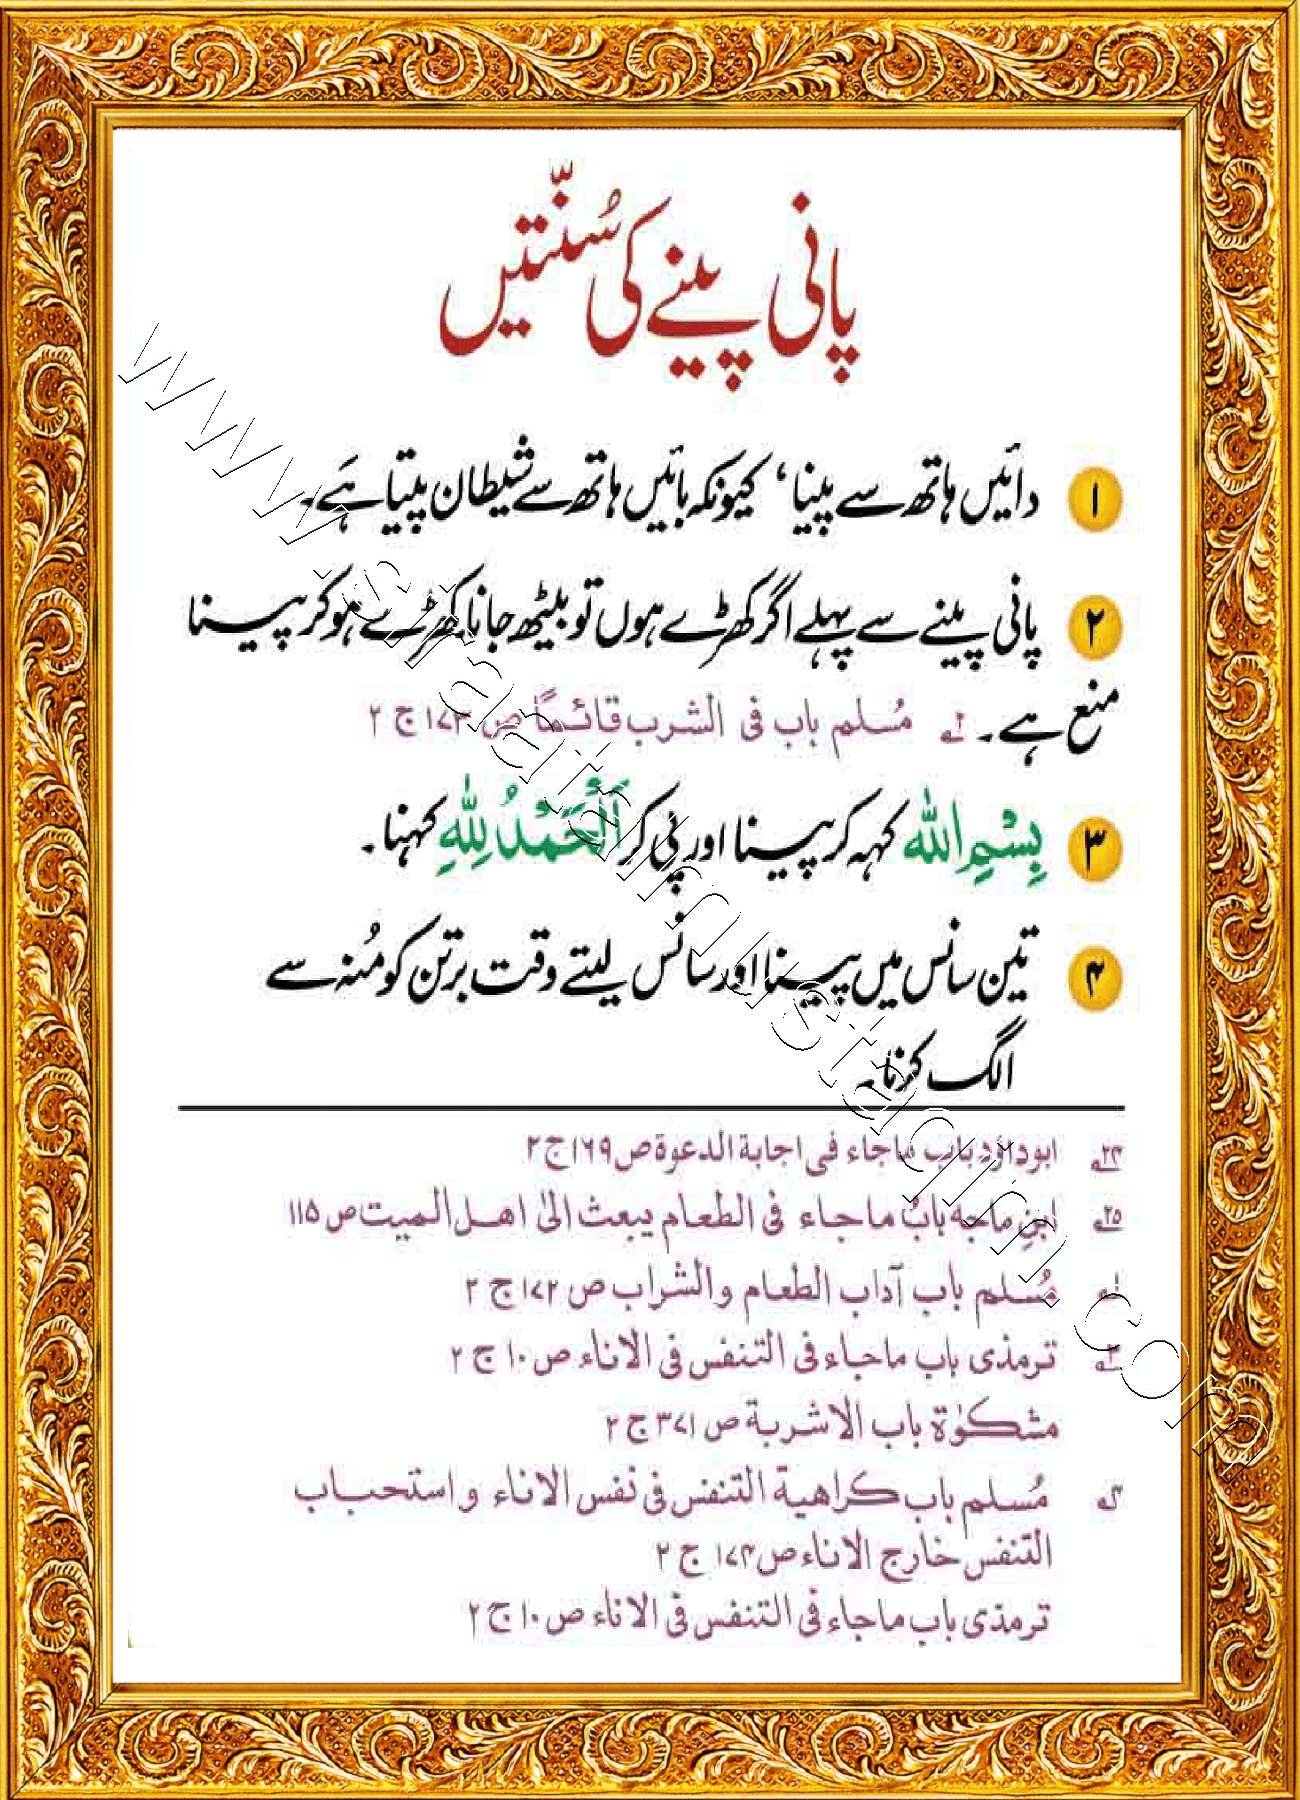 پانی پینے کی سُنّتیں
۱ دائیں ہاتھ سے پینا، کیونکہ بائیں ہاتھ سے شیطان پیتا ہے۔
۲ پانی پینے سے پہلے اگر کھڑے ہوں تو بیٹھ جانا کھڑے ہو کر پینا
منع ہے۔ ۲ مُسلم باب فی الشرب قائمًا ص ۱۷۳ ج ۲
۳ بِسْمِ اللہ کہہ کر پینا اور پی کر اَلْحَمْدُ لِلّٰهِ کہنا۔
۴ تین سانس میں پینا اور سانس لیتے وقت برتن کو مُنہ سے
الگ کرنا۔
۲۴ ابوداؤد باب ماجاء فی اجابة الدعوة ص ۱۶۹ ج ۲
۲۵ ابنِ ماجه باب ماجاء فی الطعام یبعث الیٰ اهل المیت ص ۱۱۵
۱ مُسلم باب آداب الطعام والشراب ص ۱۷۲ ج ۲
۳ ترمذی باب ماجاء فی التنفس فی الاناء ص ۱۰ ج ۲
مشکوٰة باب الاشربة ص ۳۷۱ ج ۲
۴ مُسلم باب کراهیة التنفس فی نفس الاناء واستحباب
التنفس خارج الاناء ص ۱۷۴ ج ۲
ترمذی باب ماجاء فی التنفس فی الاناء ص ۱۰ ج ۲
www.siraatalmustaqim.com